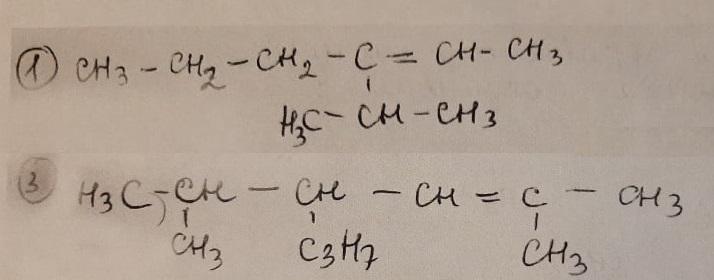 ① CH₃ – CH₂ – CH₂ – C = CH – CH₃
H₃C – CH – CH₃
③ H₃C – CH – CH – CH = C – CH₃
CH₃ C₃H₇ CH₃